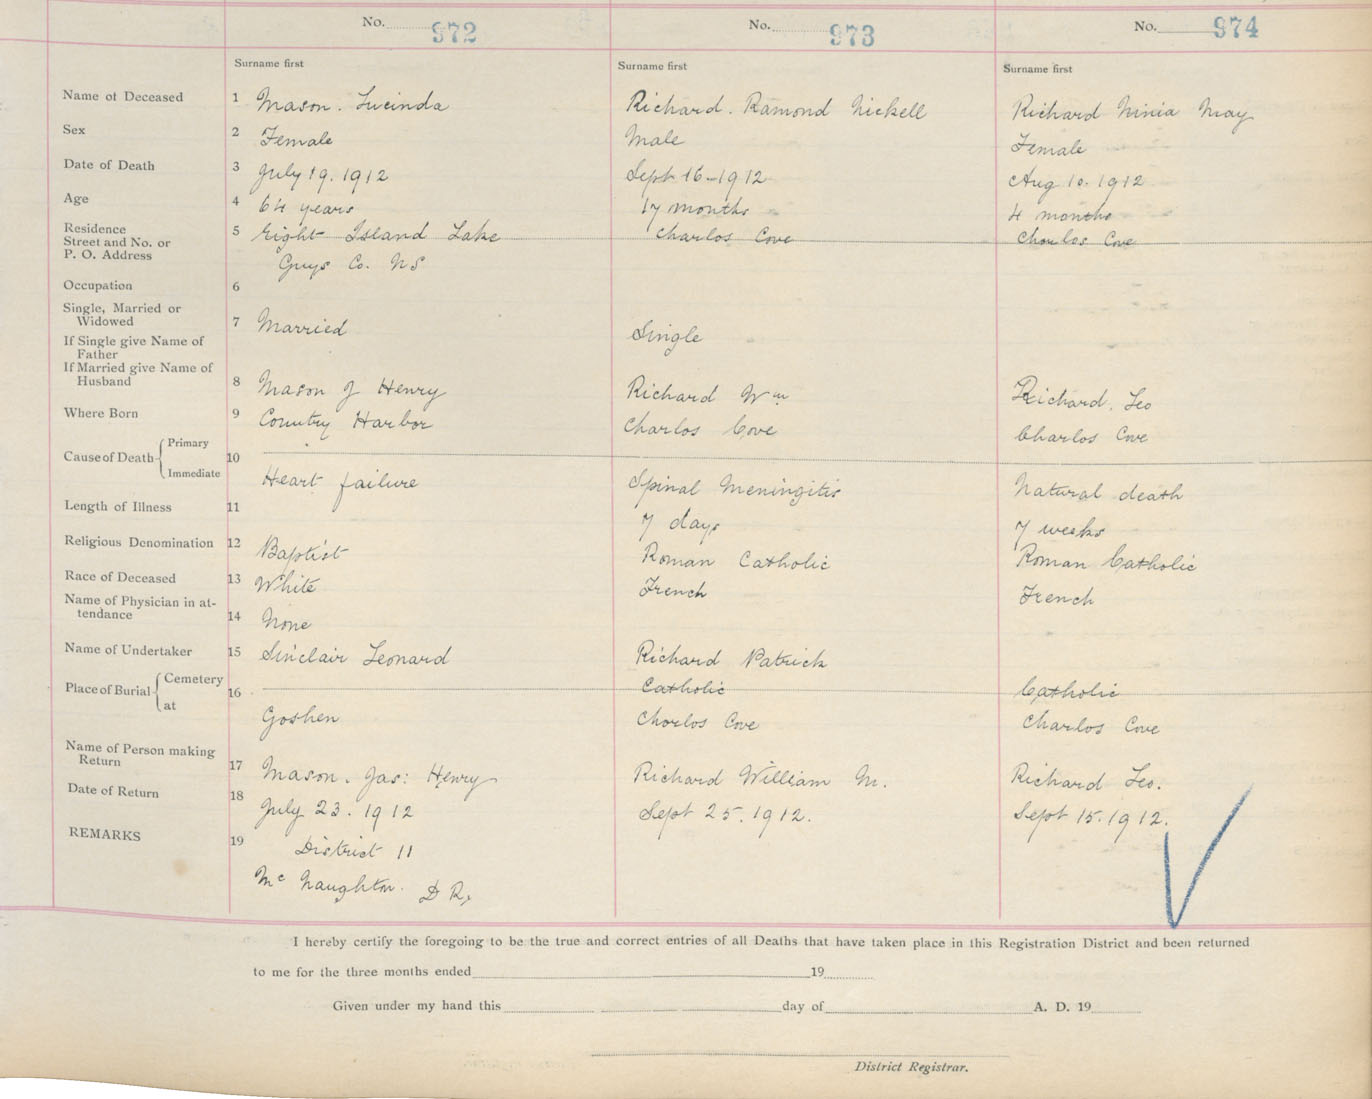 No. 972 No. 973 No. 974
Surname first Surname first Surname first
Name of Deceased 1 Mason. Lucinda Richard. Ramond Nickell Richard Ninia May
Sex 2 Female Male Female
Date of Death 3 July 19. 1912 Sept 16-1912 Aug 10. 1912
Age 4 64 years 17 months 4 months
Residence
Street and No. or 5 Eight Island Lake Charlos Cove Charlos Cove
P. O. Address Guys Co. NS
Occupation 6
Single, Married or
Widowed 7 Married Single
If Single give Name of
Father
If Married give Name of
Husband 8 Mason J Henry Richard Wm Richard. Leo
Where Born 9 Country Harbor Charlos Cove Charlos Cove
Cause of Death Primary 10
Immediate Heart failure Spinal Meningitis Natural death
Length of Illness 11 7 days 7 weeks
Religious Denomination 12 Baptist Roman Catholic Roman Catholic
Race of Deceased 13 White French French
Name of Physician in at-
tendance 14 None
Name of Undertaker 15 Sinclair Leonard Richard Patrick
Place of Burial Cemetery 16 Catholic Catholic
at Goshen Charlos Cove Charlos Cove
Name of Person making
Return 17 Mason. Jas: Henry Richard William M. Richard Leo.
Date of Return 18 July 23. 1912 Sept 25. 1912. Sept 15. 1912.
REMARKS 19 District 11
Mc Naughton. D R,
I hereby certify the foregoing to be the true and correct entries of all Deaths that have taken place in this Registration District and been returned
to me for the three months ended 19
Given under my hand this day of A. D. 19
District Registrar.